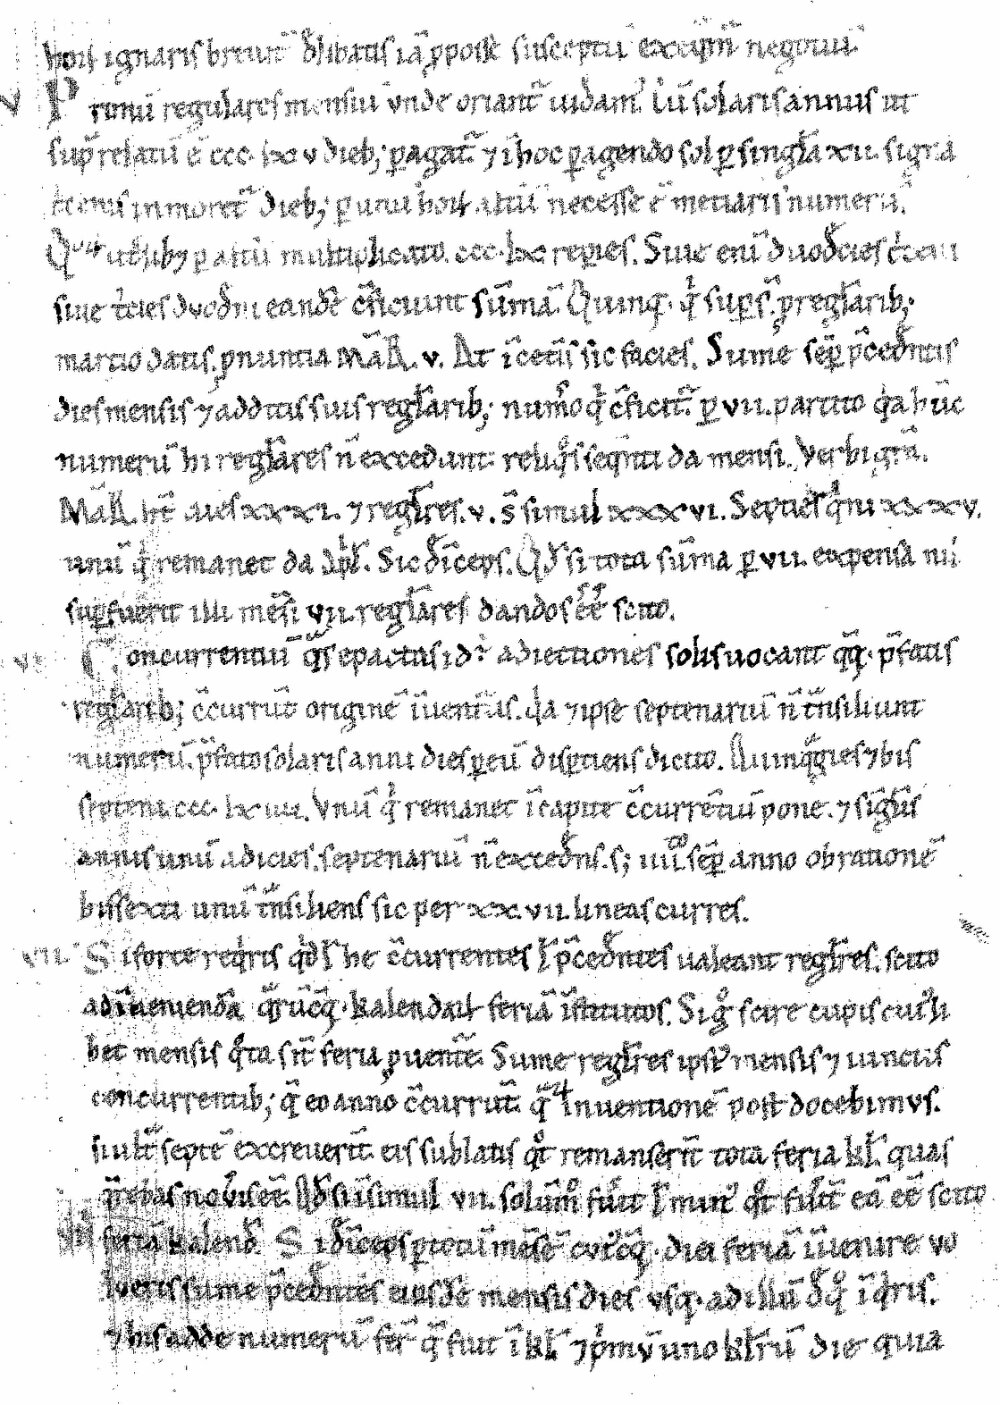 horū ignaris breuit̄ dl̄ibatis iā p̱posse susceptū exeq̄m̄ negotiū
V Primū regulares mensiū vnde oriant̄ uidam᷒. Cū solaris annus ut
sup̄ relatū ē ccc. lxv dieb; p̱agat̄ ⁊ ī hoc p̱agendo sol p̱ singl̄a xii. signa
tcenis in moret̄ dieb; p̱ unū horū altū necesse ē metiarī numerū.
p̱ altū multiplicato. ccc. lx rep̱ies. Siue eni᷒ duodcies
siue tͥcies duodni eandē cͣficiunt sūmā. Quinq. qͥ sup̱sͭ p̱ regl̄arib;
martio datis. p̱nuntia MāR. v. At īcetis̄ sic facies. Sume sēp p̄cedntis
dies mensis ⁊ additis suis regl̄arib; num̊o qͥ cͣficit᷒ p̱ vii. partito qͥa hūc
numerū hi regl̄ares n̄ excedunt reliqͦs seqn̄ti da mensi. Verbi gr̄a.
MāR. ht̄ dies xxxi. ⁊ regl̄res. v. s̄ simul xxxvi. Septies qͥni xxxv.
unū qͥ remanet da Apͥl. Sic dīceps. Qd̄ si tota sūma p̱ vii. expensa nil
sup̱fuerit illi mēsi vii. regl̄ares dandos eē scito.
VI Concurrentiū qͣs epactas id᷒ adiectiones solis uocant qq̄. p̄fatis
regl̄arib; cͣcurrūt originē īuenim̄us. Qͥa ⁊ ipse septenariū n̄ tn̄siliunt
numerū. p̄fato solaris anni dies p̱ eū disp̱tiens dicito. Quinq̄gies ⁊ bis
septeni ccc. lxiiii. Vnū qͥ remanet ī capite cͣcurrētiū pone. ⁊ siglis̄
annis unū adicies. septenariū n̄ excedns. s; iiiiͭͦ sēp anno ob rationē
bissexti unū tn̄siliens sic per xxvii. lineas curres.
VII Si forte req̄ris qͥd l̄ he cͣcurrentes l̄ p̄cedntes ualeant regl̄res. scito
ad īueniendā qͣrūcq̄. kalendarū feriā īstitutos. Si gͦ scire cupis cui᷒li
bet mensis qͦta sīt feria p̱uente. Sume regl̄res ipsi᷒ mensis ⁊ iunctis
concurrentib; q̄ eo anno cͣcurrūt. qͣrū inuentionē post docebimus.
si ult̄ septē excreuerit̄. eis sublatis qͦt remanserīt tota feria kl̄. quas
q̄rebas nouͥs eē. Qd̄ si īsimul vii. solūm̊ fuit̄ l̄ min᷒ qͦt fuit̄ eā eē scito
VIII feriā kalend̄. Si dīceps p̱ totū mēsē cui᷒cq̄. diei feriā īuenire uo
lueris sume p̄cedntes eiusdē mensis dies usq. ad illū dē qͦ īqͥris.
⁊ his adde numerū fer᷒ q̄ fiut ī kl̄ ⁊ p̱m̄ v uno kl̄rū die quia